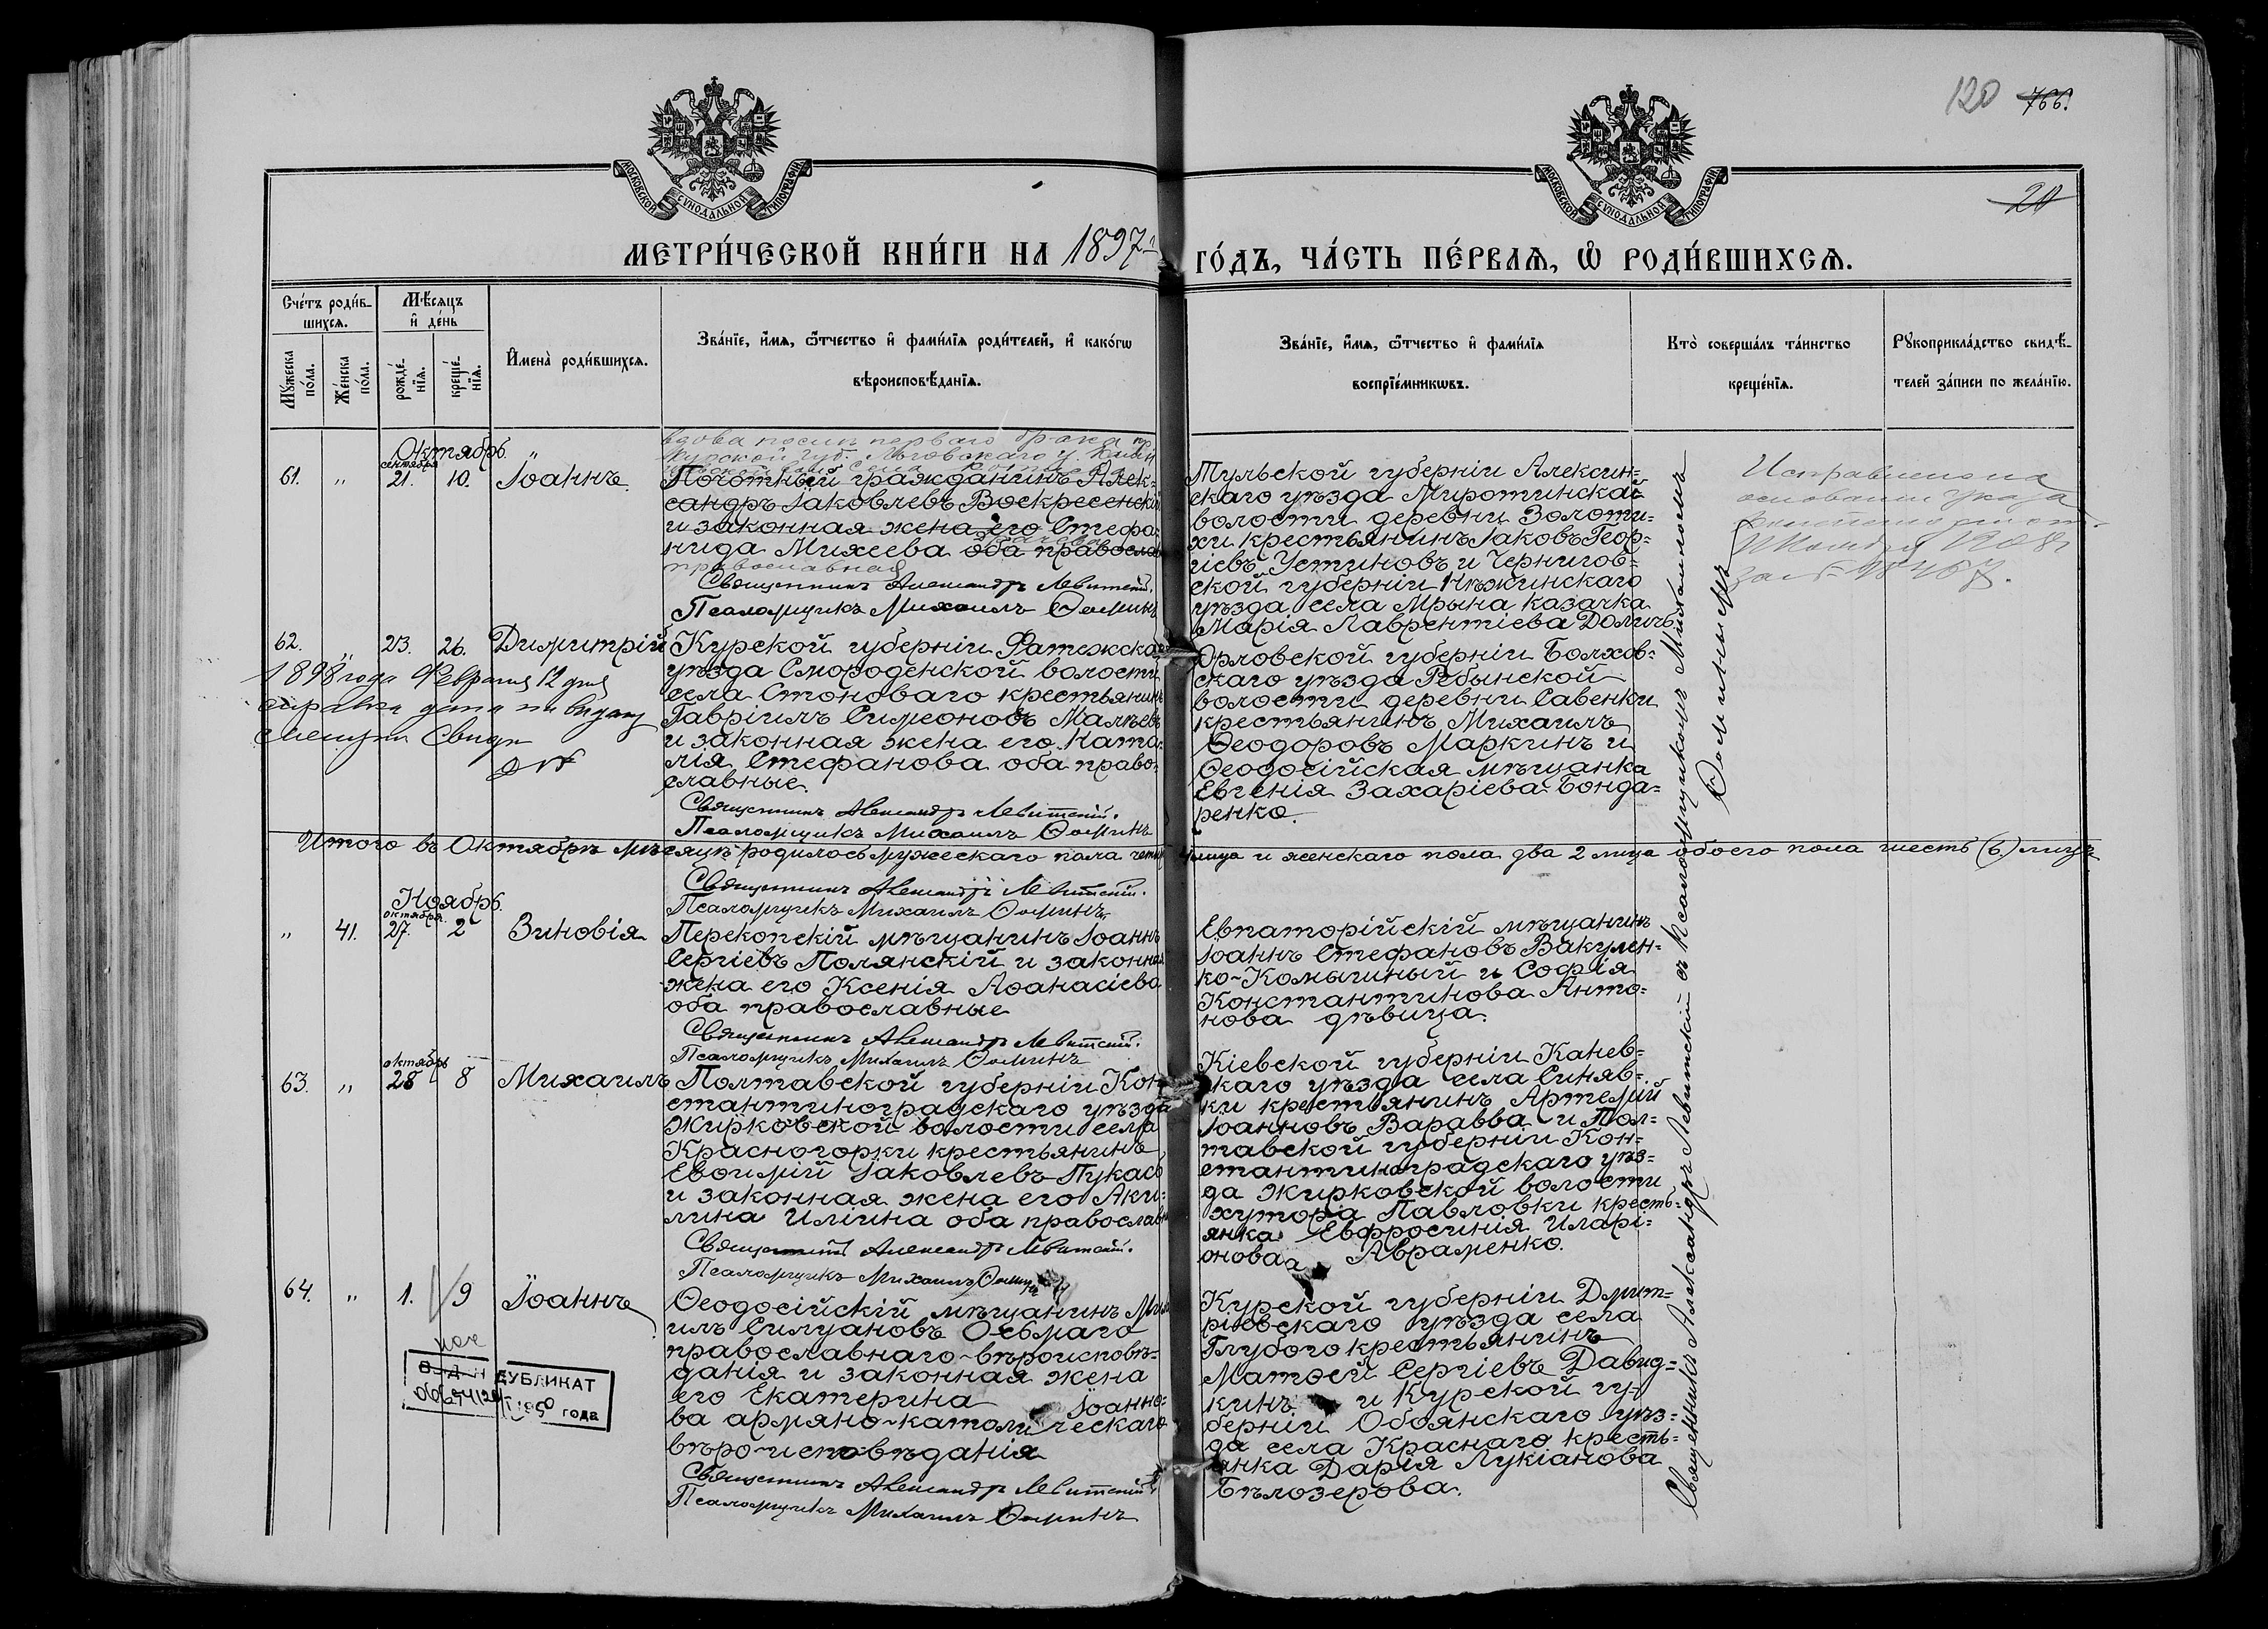 120 766.
МОСКОВСКОЙ СѴНОДАЛЬНОЙ ТИПОГРАФІИ
МОСКОВСКОЙ СѴНОДАЛЬНОЙ ТИПОГРАФІИ
20
МЕТРИ́ЧЕСКОЙ КНИ́ГИ НА 1897 ГО́ДЪ, ЧА́СТЬ ПЕ́РВАѦ, Ѡ҆ РОДИ́ВШИХСѦ.
Сче́тъ роди́в-
шихсѧ.
Мꙋ́жеска по́ла.
Же́нска по́ла.
Мѣ́сѧцъ
и҆ де́нь
рожде́-нїѧ.
креще́-нїѧ.
И҆мена̀ роди́вшихсѧ.
Зва́нїе, и҆́мѧ, ѻ҆́тчество и҆ фами́лїѧ роди́телей, и҆ како́гѡ
вѣроисповѣ́данїѧ.
Зва́нїе, и҆́мѧ, ѻ҆́тчество и҆ фами́лїѧ
воспрїе́мникѡвъ.
Кто̀ соверша́лъ та́инство
креще́нїѧ.
Рꙋкоприкла́дство свидѣ́-
телей за́писи по жела́нїю.
Октябрь.
вдова послѣ перваго брака
Курской губ. Льговскаго у.
61. " сентября 21. 10. Іоаннъ.
Почотный гражданинъ Алек-
сандръ Іаковлевъ Воскресенскій
и законная жена его Стефа-
нида Михеева оба православ
православная
Священникъ Александръ Левитскій.
Псаломщикъ Михаилъ Ѳоминъ
Тульской губерніи Алексин-
скаго уѣзда Миротинской
волости деревни Золоти-
хи крестьянинъ Іаковъ Геор-
гіевъ Устиновъ и Чернигов-
ской губерніи Нѣжинскаго
уѣзда села Мрына казачка
Марія Лаврентіева Долич
Исправлено на
основаніи указа
62. " 23. 26. Димитрій
1898 года Февраля 12 дня
Курской губерніи Фатежска
уѣзда Смороденской волости
села Стоноваго крестьянинъ
Гавріилъ Симеоновъ Малѣевъ
и законная жена его Ната-
лія Стефанова оба право-
славные.
Священникъ Александръ Левитскій.
Псаломщикъ Михаилъ Ѳоминъ
Орловской губерніи Болхов-
скаго уѣзда Рѣбынской
волости деревни Савенки
крестьянинъ Михаилъ
Ѳеодоровъ Маркинъ и
Ѳеодосійская мѣщанка
Евгенія Захаріева Бонда-
ренко.
Итого въ Октябрѣ мѣсяцѣ родилось мужескаго пола четы 4 лица и женскаго пола два 2 лица обоего пола шесть (6) лицъ
Священникъ Александръ Левитскій.
Псаломщикъ Михаилъ Ѳоминъ
Ноябрь.
" 41. октября. 27. 2 Зиновія
Перекопскій мѣщанинъ Іоаннъ
Сергіевъ Полянскій и законна
жена его Ксенія Аѳанасіева
оба православные
Священникъ Александръ Левитскій.
Псаломщикъ Михаилъ Ѳоминъ
Евпаторійскій мѣщанинъ
Іоаннъ Стефановъ Вакулен-
ко-Комышный и Софія
Константинова Анто-
нова дѣвица.
63. " октябрь 28 8 Михаилъ
Полтавской губерніи Кон-
стантиноградскаго уѣзда
Жирковской волости села
Красногорки крестьянинъ
Евѳимій Іаковлевъ Пукасо
и законная жена его Аки-
лина Иліина оба православн
Священникъ Александръ Левитскій.
Псаломщикъ Михаилъ Ѳоминъ
Кіевской губерніи Канев-
скаго уѣзда села Синяв-
ки крестьянинъ Артемій
Іоанновъ Варавва и Пол-
тавской губерніи Кон-
стантиноградскаго уѣз-
да Жирковской волости
хутора Павловки кресть-
янка Евфросинія Иларі-
онова Авраменко.
64. " 1. 9 Іоаннъ
Ѳеодосійскій мѣщанинъ Ми
илъ Силуановъ Осьмаго
православнаго-вѣроисповѣ-
данія и законная жена
его Екатерина Іоанно-
ва армяно-католическаго
вѣро-исповѣданія
Священникъ Александръ Левитскій
Псаломщикъ Михаилъ Ѳоминъ
Курской губерніи Дмит-
ріевскаго уѣзда села
Глубого крестьянинъ
Матѳей Сергіевъ Давид-
кинъ и Курской гу-
берніи Обоянскаго уѣз-
да села Краснаго кресть-
янка Дарія Лукіанова
Бѣлозерова.
ДУБЛИКАТ
1950 года
Священникъ Александръ Левитскій съ Псаломщикомъ Михаиломъ
Ѳоминымъ